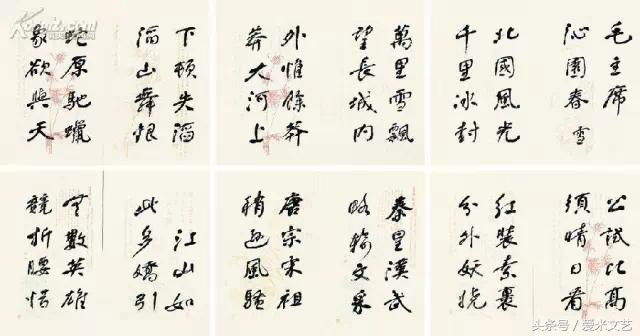 毛主席
沁園春 雪
北國風光
千里冰封
萬里雪飄
望長城内
外惟餘莽
莽大河上
下頓失滔
滔山舞銀
蛇原馳蠟
象欲與天
公試比高
須晴日看
红裝素裹
分外妖嬈
秦皇漢武
略输文采
唐宗宋祖
稍遜風騷
江山如
此多嬌引
無數英雄
競折腰惜
头条号 / 爱米文艺